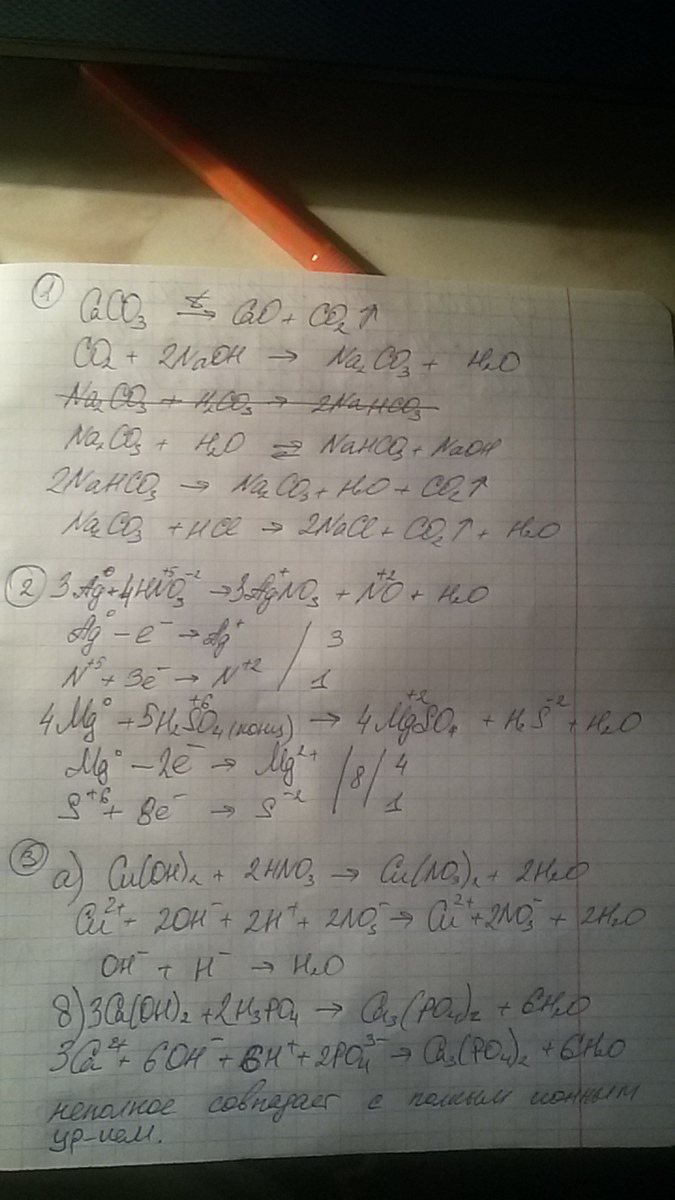 ① CaCO₃ ⇄ᵗ CaO + CO₂↑
CO₂ + 2NaOH → Na₂CO₃ + H₂O
Na₂CO₃ + H₂CO₃ → 2NaHCO₃
Na₂CO₃ + H₂O ⇄ NaHCO₃ + NaOH
2NaHCO₃ → Na₂CO₃ + H₂O + CO₂↑
Na₂CO₃ + HCl → 2NaCl + CO₂↑ + H₂O
② 3Ag⁰ + 4HN⁺⁵O₃⁻² → 3Ag⁺NO₃ + N⁺²O + H₂O
Ag⁰ – e⁻ → Ag⁺ / 3
N⁺⁵ + 3e⁻ → N⁺² / 1
4Mg⁰ + 5H₂S⁺⁶O₄(конц) → 4Mg⁺²SO₄ + H₂S⁻² + H₂O
Mg⁰ – 2e⁻ → Mg²⁺ /8/ 4
S⁺⁶ + 8e⁻ → S⁻² 1
③ а) Cu(OH)₂ + 2HNO₃ → Cu(NO₃)₂ + 2H₂O
Cu²⁺ + 2OH⁻ + 2H⁺ + 2NO₃⁻ → Cu²⁺ + 2NO₃⁻ + 2H₂O
OH⁻ + H⁻ → H₂O
б) 3Ca(OH)₂ + 2H₃PO₄ → Ca₃(PO₄)₂ + 6H₂O
3Ca²⁺ + 6OH⁻ + 6H⁺ + 2PO₄³⁻ → Ca₃(PO₄)₂ + 6H₂O
неполное совпадает с полным ионным
ур-ием.